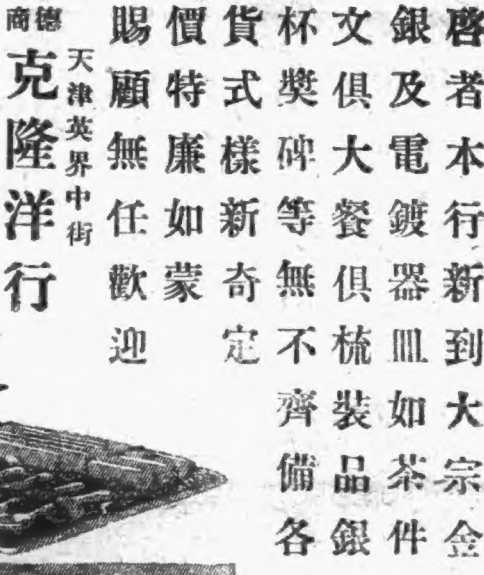 啓者本行新到大宗金
銀及電鍍器皿如茶件
文俱大餐俱梳裝品銀
杯獎碑等無不齊備各
貨式樣新奇定
價特廉如蒙
賜顧無任歡迎
天津英界中街
德商
克隆洋行